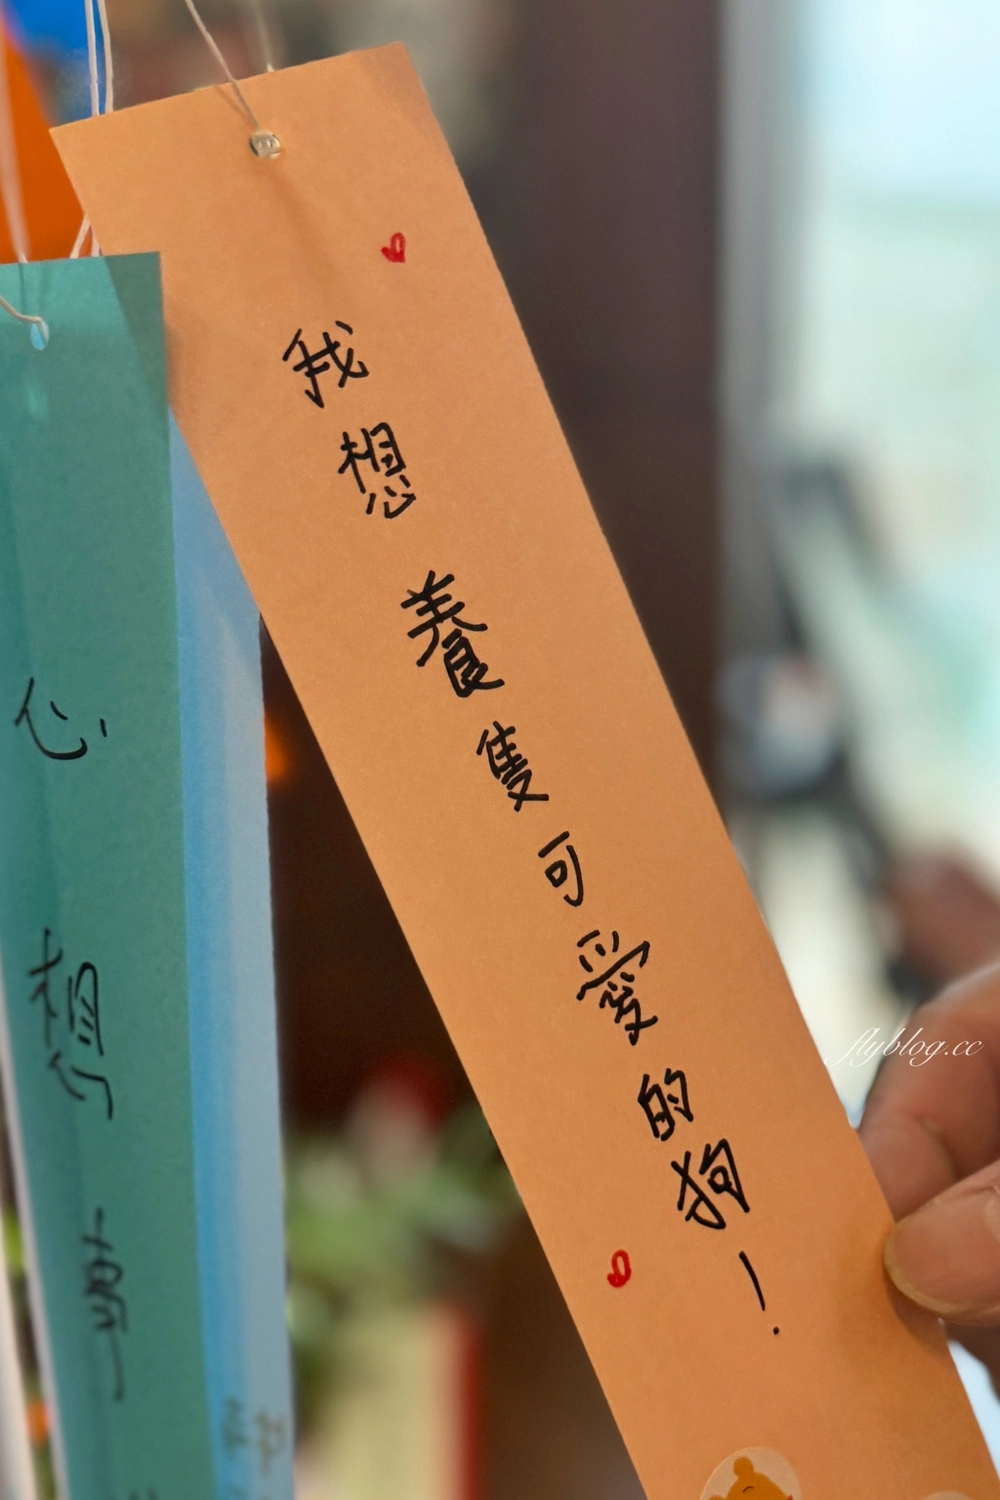 我想養隻可愛的狗！
心想事
flyblog.cc